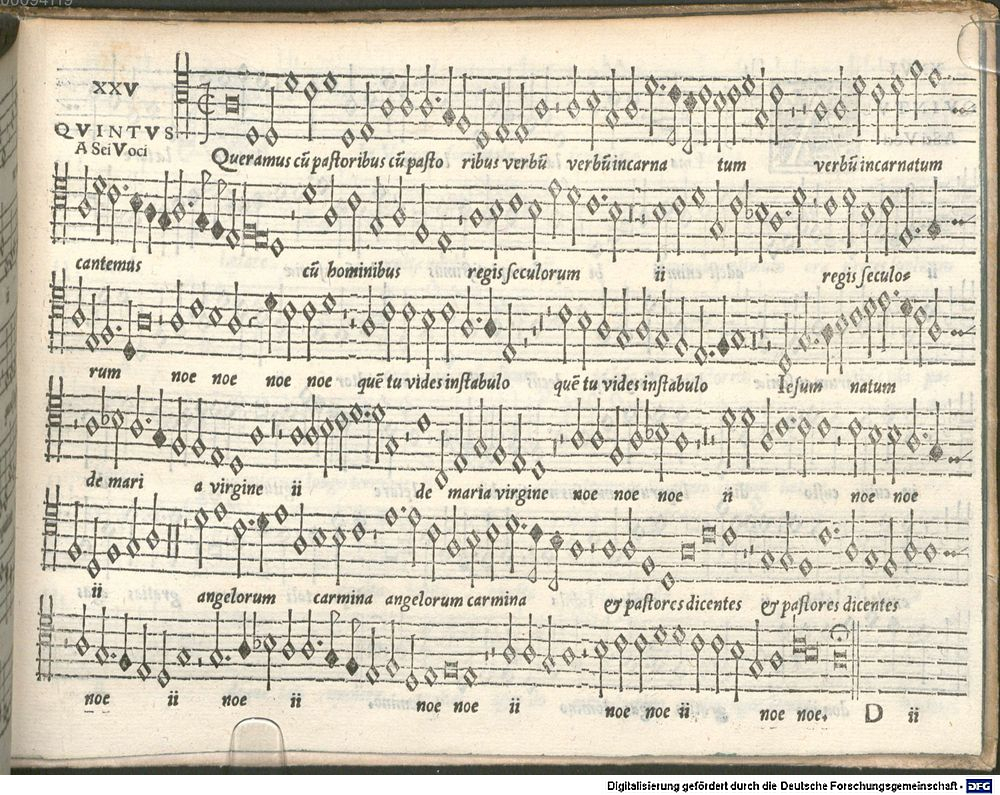 XXV
QVINTVS
A Sei Voci
Queramus cū pastoribus cū pasto ribus verbū verbū incarna tum verbū incarnatum
cantemus cū hominibus regis seculorum ii regis seculo=
rum noe noe noe noe quē tu vides in stabulo quē tu vides in stabulo Iesum natum
de mari a virgine ii de maria virgine noe noe noe ii noe noe
ii angelorum carmina angelorum carmina & pastores dicentes & pastores dicentes
noe ii noe ii noe noe ii noe noe ii noe noe. D ii
Digitalisierung gefördert durch die Deutsche Forschungsgemeinschaft - DFG